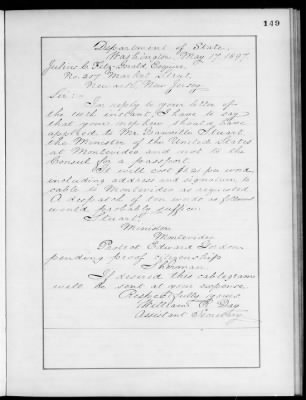 149
Department of State,
Washington, May 17, 1897
Julius C. Fitz-Gerald, Esquire,
No. 207 Market Street,
Newark, New Jersey
Sir:-
In reply to your letter of
the 14th instant, I have to say
that your nephew should have
applied to Mr. Granville Stuart,
the Minister of the United States
at Montevideo and not to the
Consul for a passport.
It will cost per word
including address and signature to
cable to Montevideo as requested.
A despatch of ten words as follows
would probably suffice:
Stuart
Minister
Montevideo
Protect Edward
pending proof citizenship
Sherman
If desired this cablegram
will be sent at your expense
Respectfully yours
William R. Day
Assistant Secretary